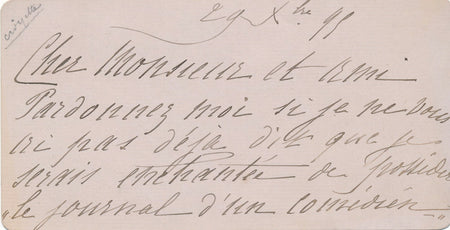 croizette
29 Xbre 95
Cher Monsieur et ami
Pardonnez moi si je ne vous
ai pas déjà dit que je
serais enchantée de posséder
"le journal d'un comédien"